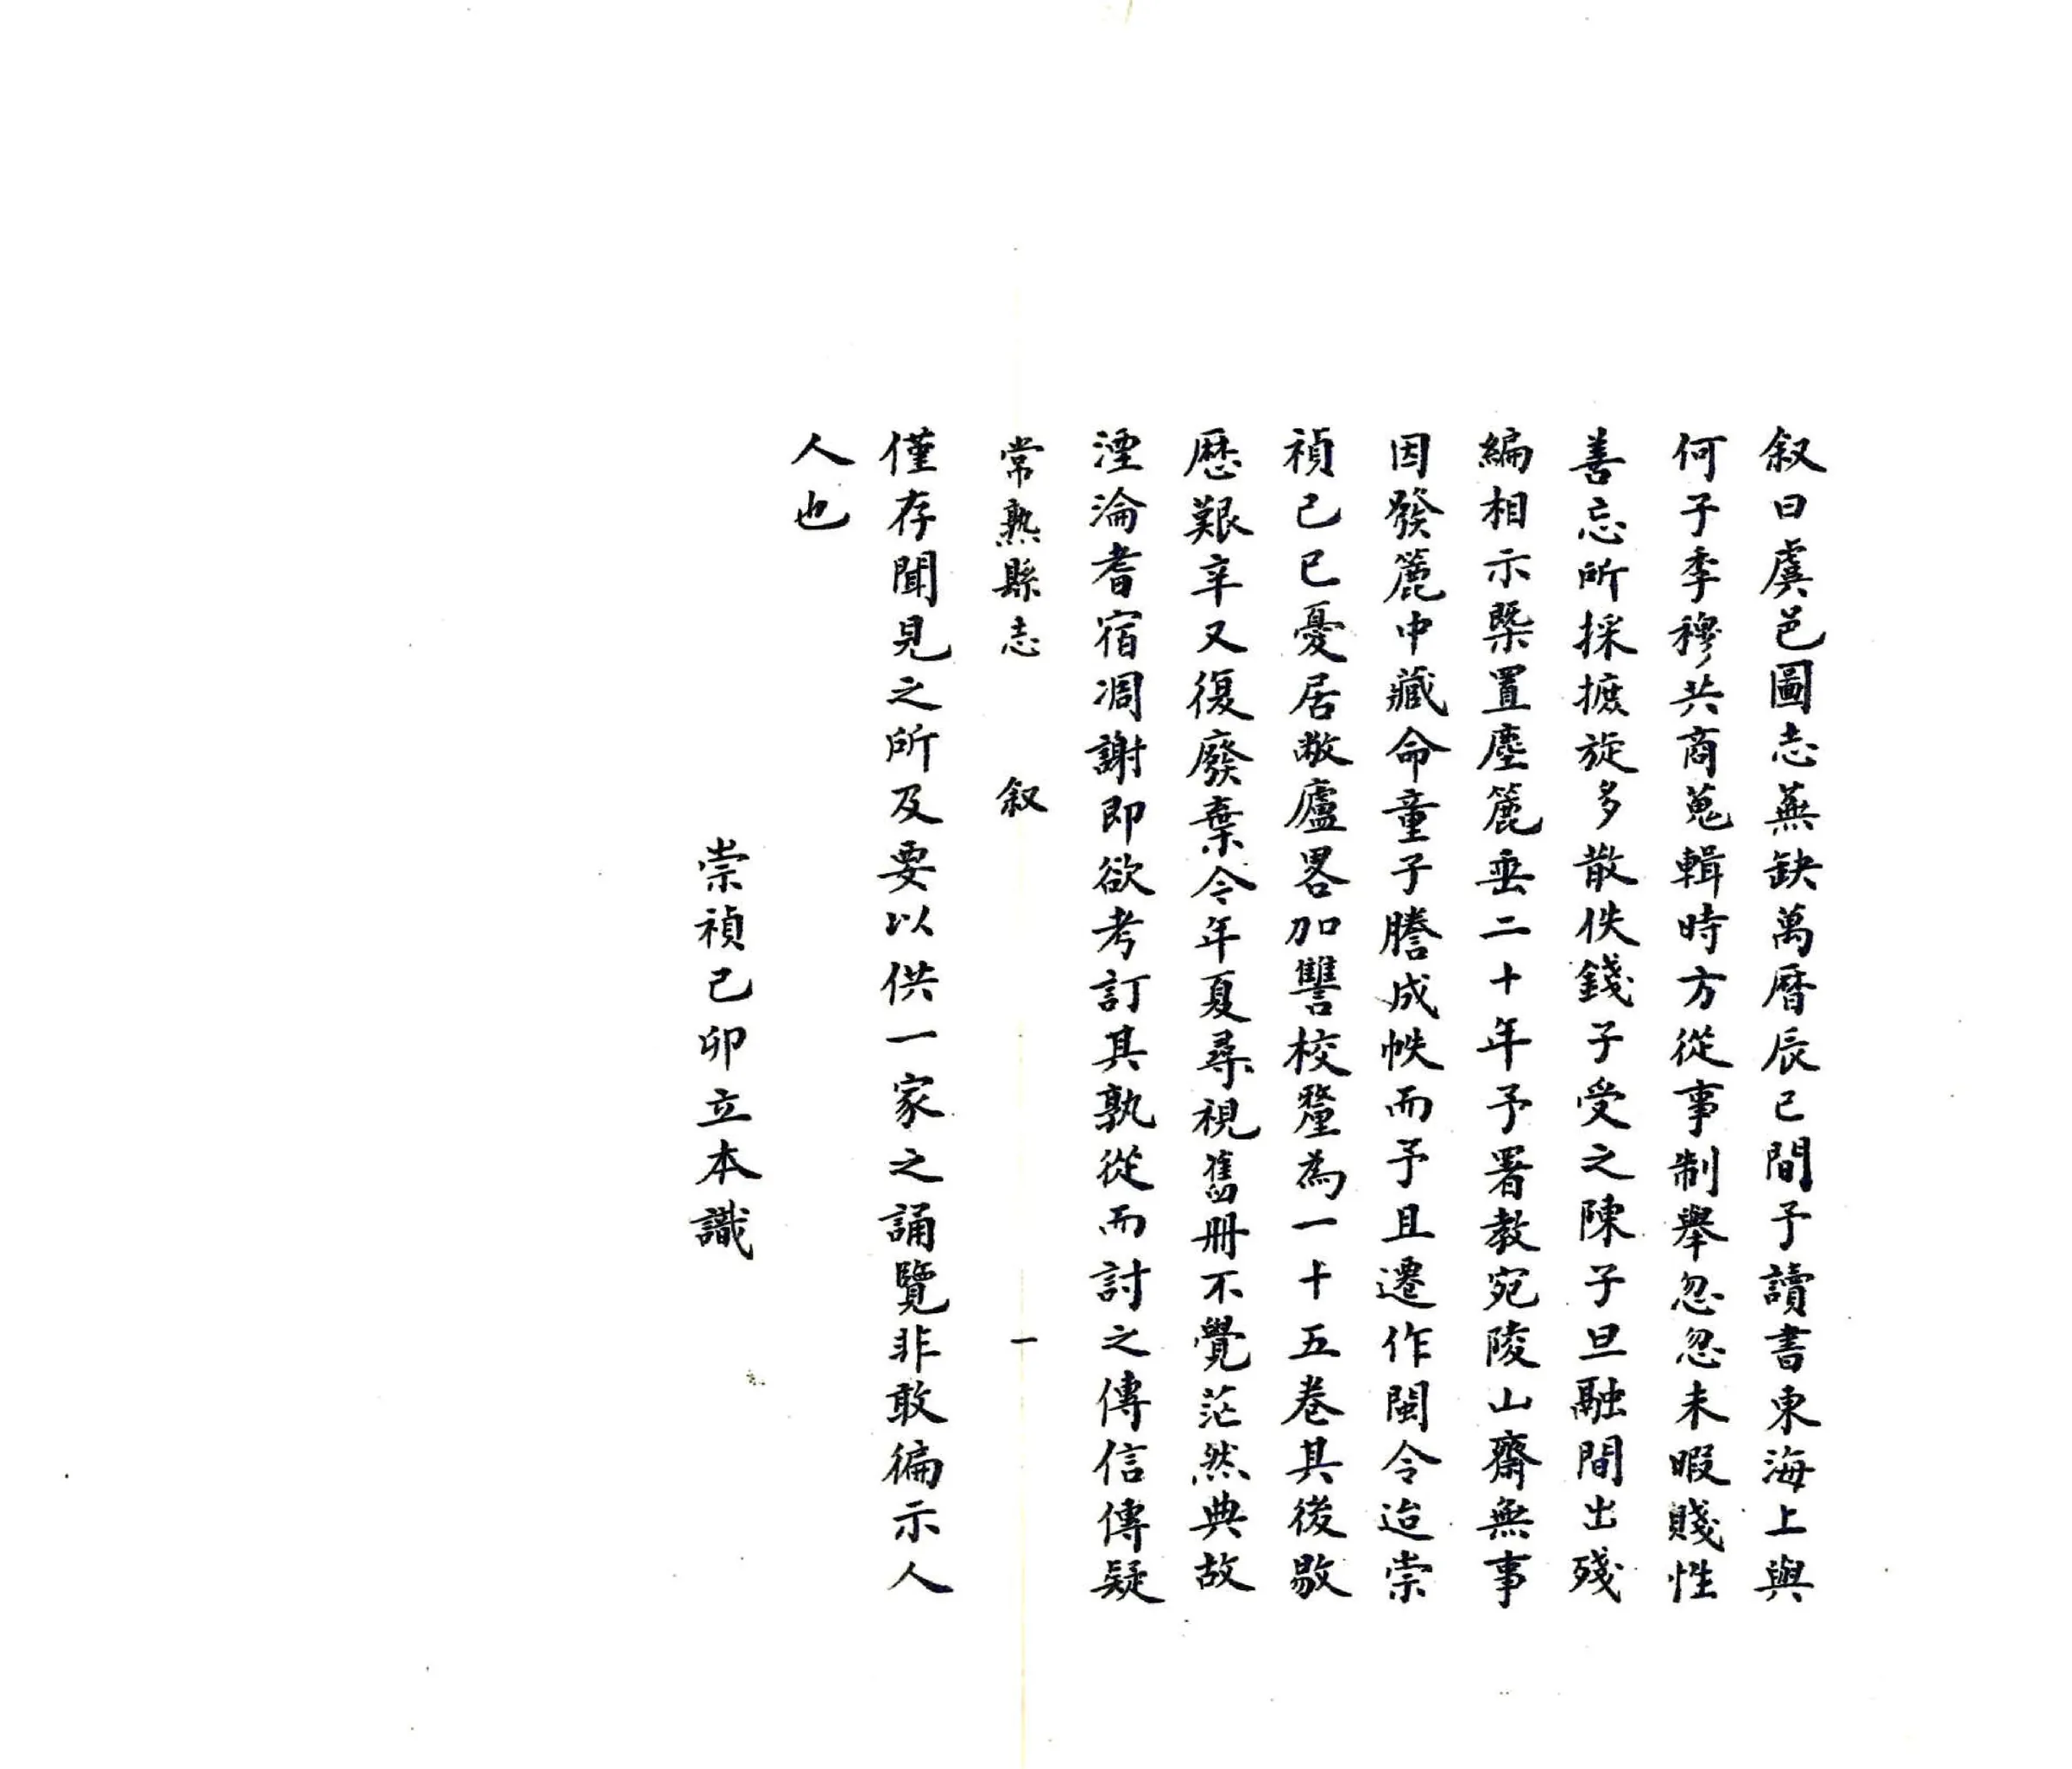 叙曰虞邑圖志蕪缺萬曆辰巳間予讀書東海上與
何子季穆共商蒐輯時方從事制舉忽忽未暇賤性
善忘所採摭旋多散佚錢子受之陳子旦融間出殘
編相示槩置塵簏垂二十年予署教宛陵山齋無事
因發簏中藏命童子謄成帙而予且遷作閩令迨崇
禎己巳憂居敝廬畧加讐校釐為一十五卷其後敭
歷艱辛又復廢棄今年夏尋視舊冊不覺茫然典故
湮淪耆宿凋謝即欲考訂其孰從而討之傳信傳疑
常熟縣志 叙 一
僅存聞見之所及要以供一家之誦覽非敢徧示人
人也
崇禎己卯立本識